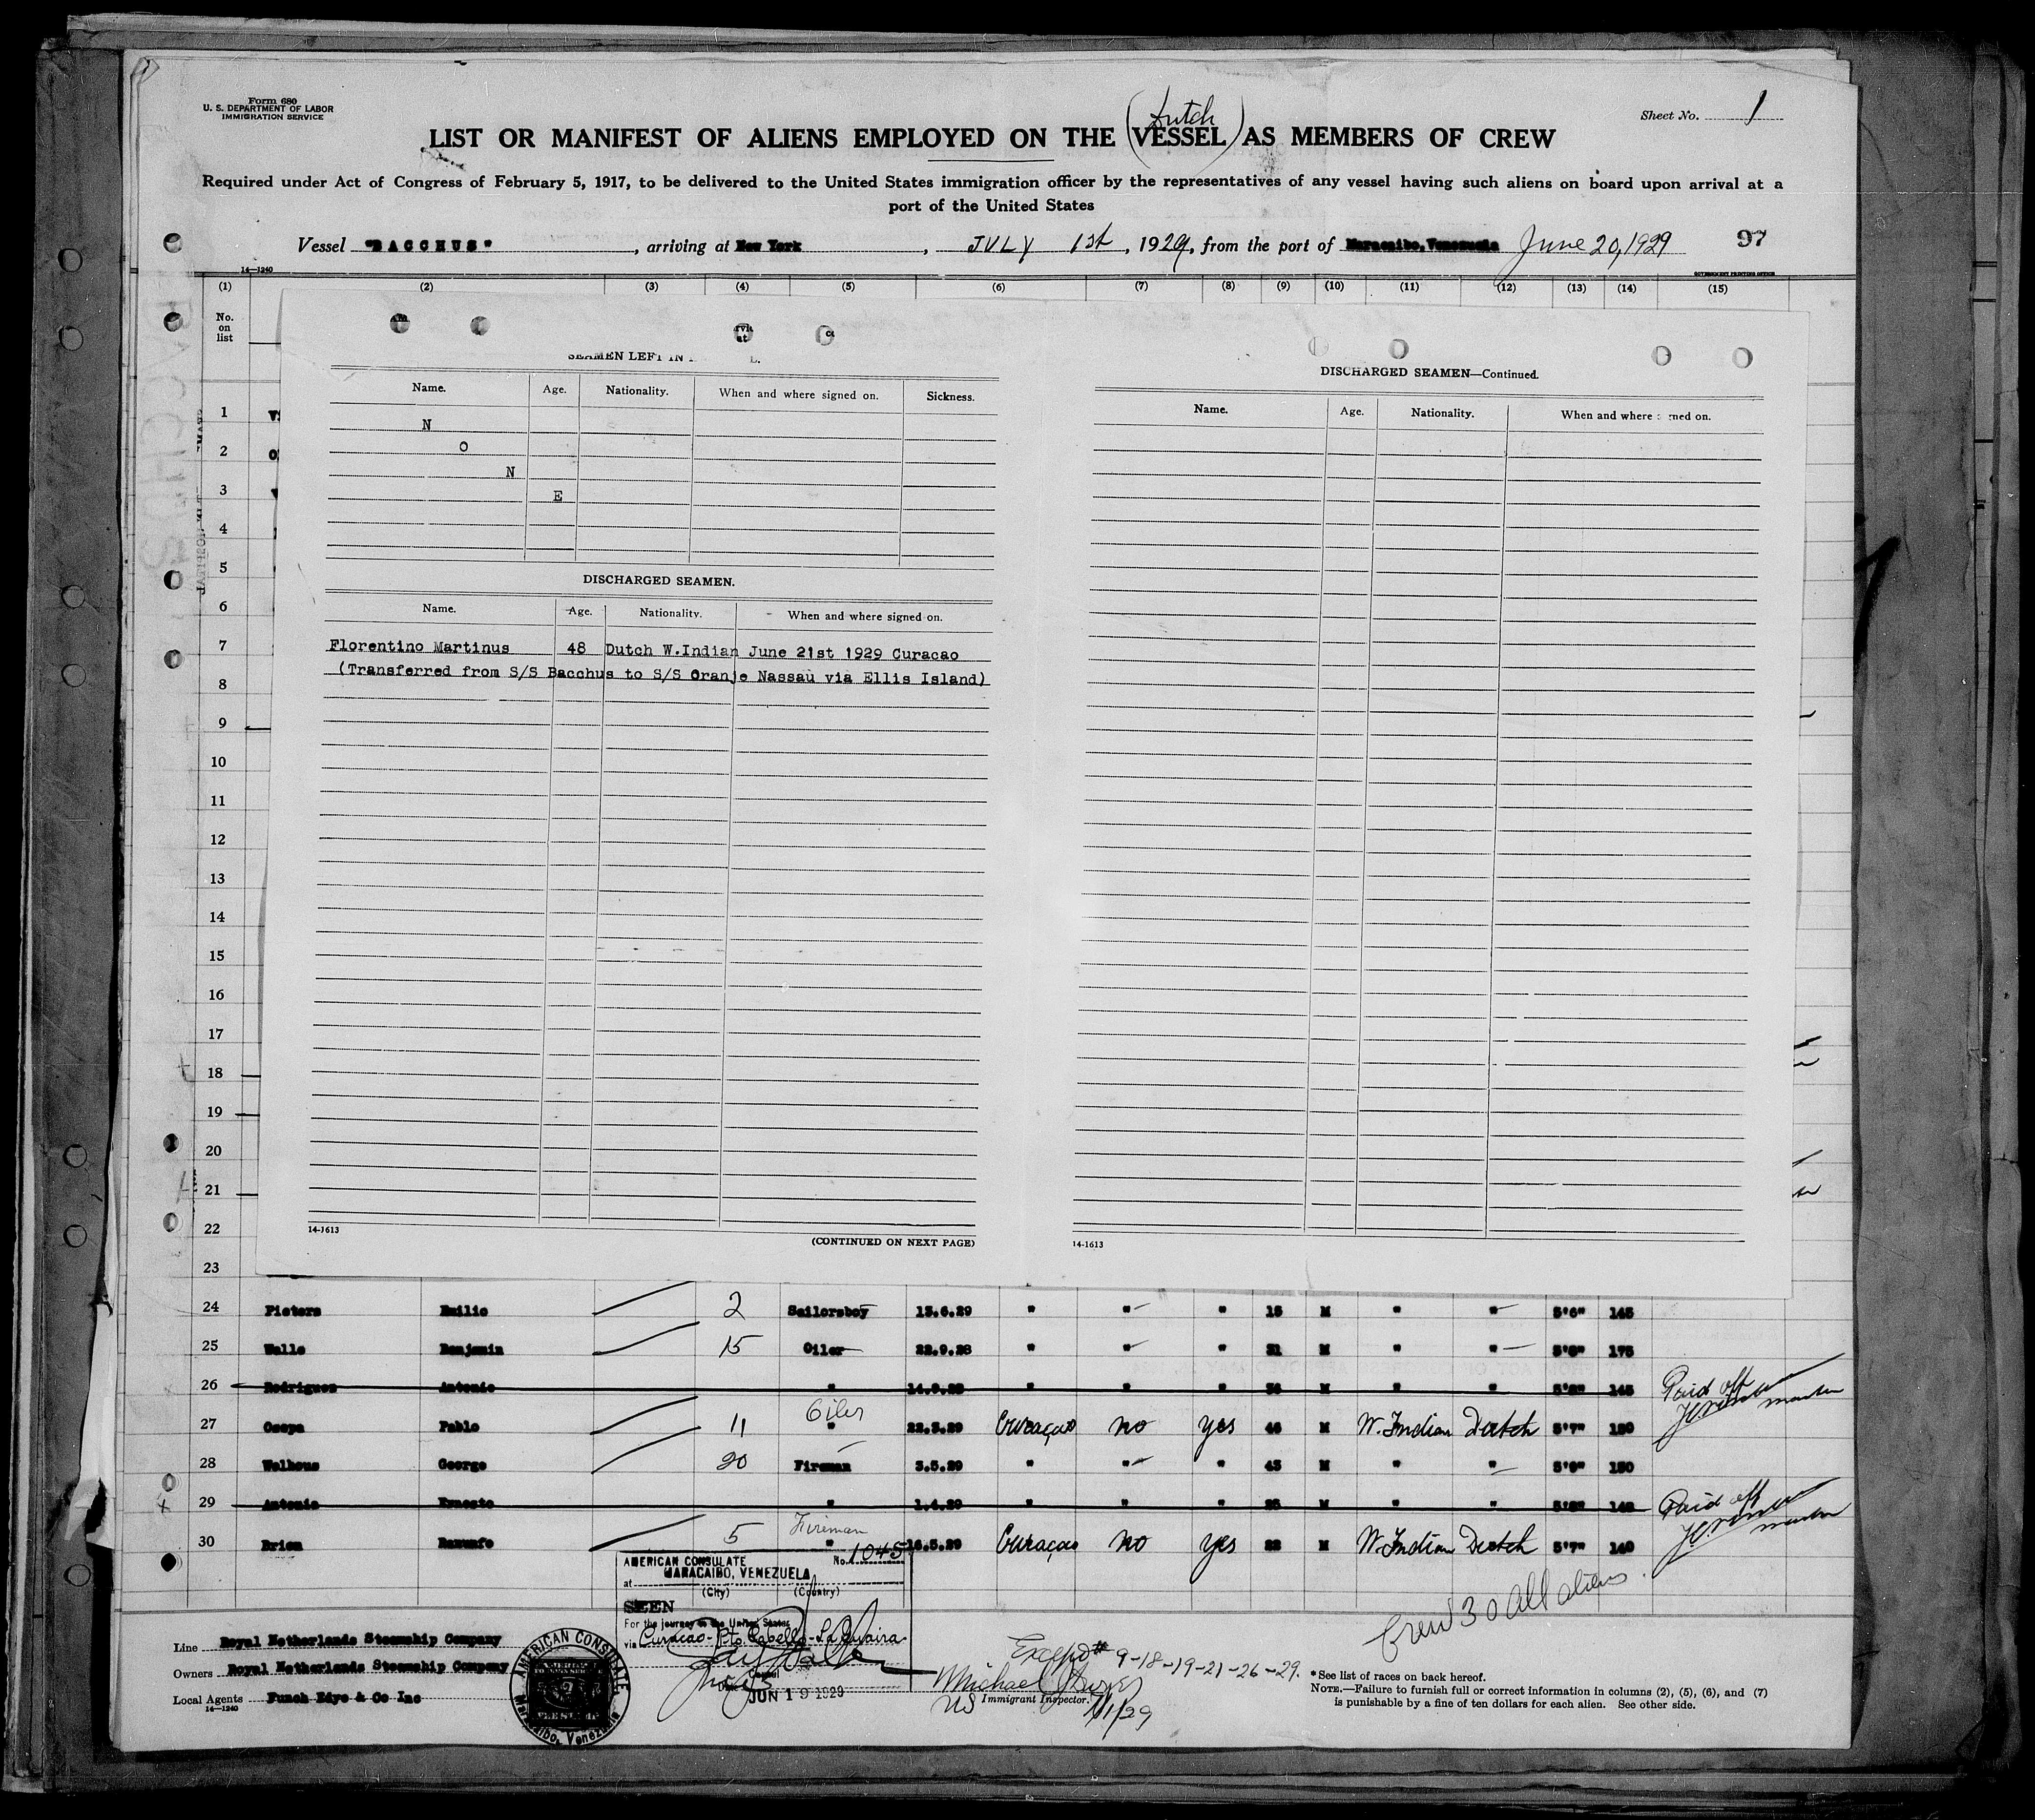 Form 680
U. S. DEPARTMENT OF LABOR
IMMIGRATION SERVICE
Sheet No. 1
Dutch
LIST OR MANIFEST OF ALIENS EMPLOYED ON THE (VESSEL) AS MEMBERS OF CREW
Required under Act of Congress of February 5, 1917, to be delivered to the United States immigration officer by the representatives of any vessel having such aliens on board upon arrival at a
port of the United States
Vessel "BACCHUS", arriving at New York, JULY 1st, 1929, from the port of Maracaibo, Venezuela June 20, 1929
97
14—1240
GOVERNMENT PRINTING OFFICE
(1) (2) (3) (4) (5) (6) (7) (8) (9) (10) (11) (12) (13) (14) (15)
No.
on
list
SEAMEN LEFT IN
Name. Age. Nationality. When and where signed on. Sickness.
N
O
N
E
DISCHARGED SEAMEN.
Name. Age. Nationality. When and where signed on.
Florentino Martinus 48 Dutch W.Indian June 21st 1929 Curacao
(Transferred from S/S Bacchus to S/S Oranje Nassau via Ellis Island)
14-1613
(CONTINUED ON NEXT PAGE)
DISCHARGED SEAMEN—Continued.
Name. Age. Nationality. When and where signed on.
14-1613
1
2
3
4
5
6
7
8
9
10
11
12
13
14
15
16
17
18
19
20
21
22
23
24 Pieters Emilio 2 Sailorsboy 13.6.29 " " " 15 M " " 5'6" 145
25 Walle Benjamin 15 Oiler 22.9.28 " " " 31 M " " 5'8" 175
26 Rodrigues Antonio " " " " M " " 5'8" 145 Paid off
27 Pablo 11 Oiler " 22.5.29 Curaçao no yes 46 M W. Indian Dutch 5'7" 150 master
28 George 20 Fireman 3.5.29 " " " 43 M " " 5'9" 150
29 Antonia Ernesto " 1.4.29 " " " M " " 5'8" Paid off
30 5 Fireman " 16.5.29 Curaçao no yes 22 M W. Indian Dutch 5'7" 140 master
AMERICAN CONSULATE No. 1045
at MARACAIBO, VENEZUELA
(City) (Country)
SEEN
For the journey to the United States
via Curacao - Pto Cabello - La Guaira
JUN 19 1929
AMERICAN CONSULATE,
Maracaibo, Venezuela
Crew 30 all aliens.
Line Royal Netherlands Steamship Company
Owners Royal Netherlands Steamship Company
Local Agents Funch Edye & Co Inc
14—1240
Except # 9-18-19-21-26-29.
Michael
US Immigrant Inspector.
7/1/29
* See list of races on back hereof.
NOTE.—Failure to furnish full or correct information in columns (2), (5), (6), and (7)
is punishable by a fine of ten dollars for each alien. See other side.